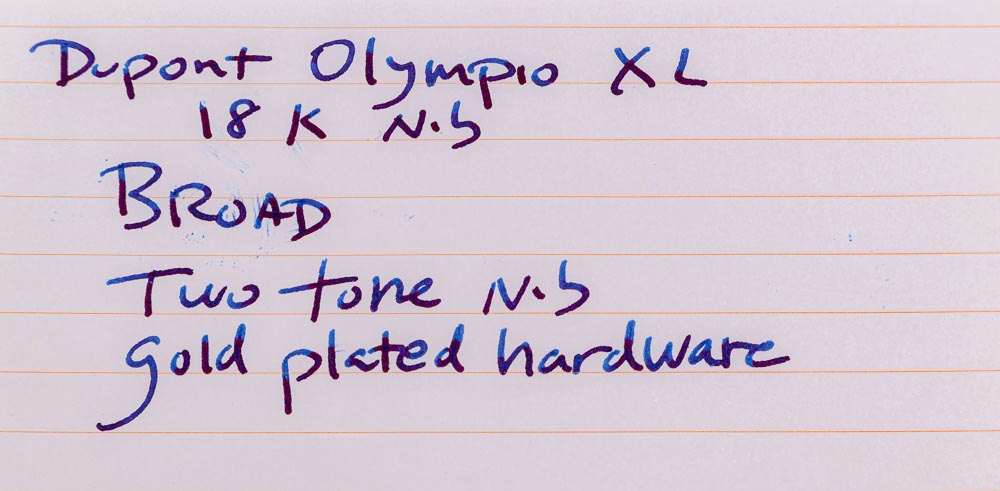 Dupont Olympio XL
18 K Nib
BROAD
Two tone Nib
gold plated hardware